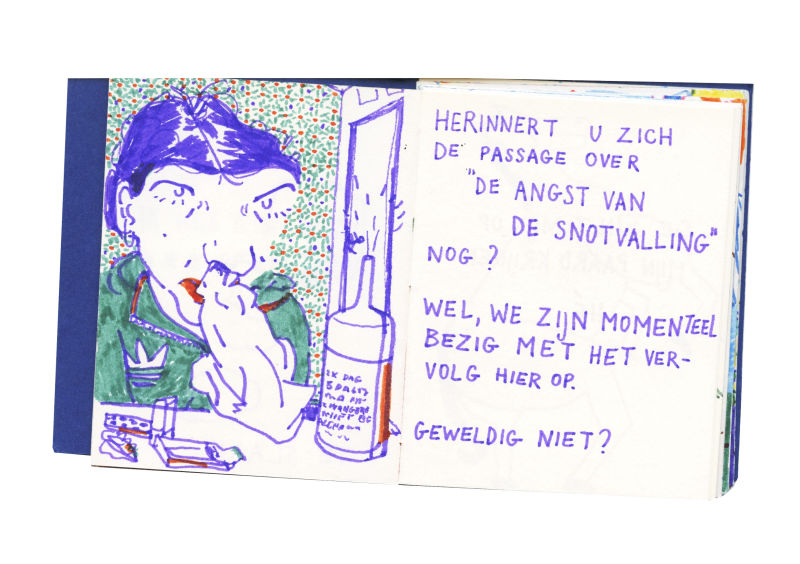 HERINNERT U ZICH
DE PASSAGE OVER
"DE ANGST VAN
DE SNOTVALLING"
NOG?
WEL, WE ZIJN MOMENTEEL
BEZIG MET HET VER-
VOLG HIER OP.
GEWELDIG NIET?
2X DAG
5 DAGEN